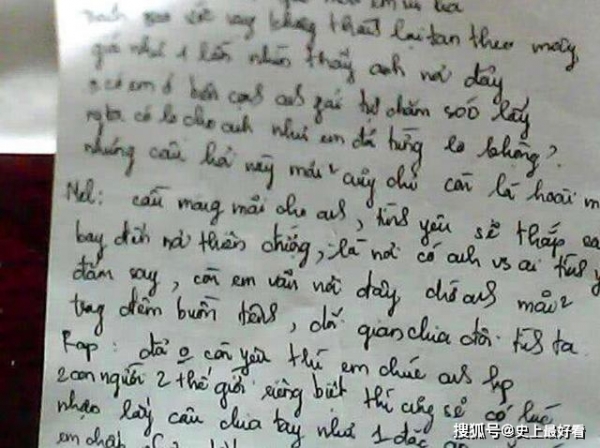 say không thể lại tan theo mây
giá như 1 lần nhìn thấy anh nơi đây
có em ở bên cạnh anh phải tự chăm sóc lấy
ngta có lo cho anh như em đã từng lo không?
những câu hỏi này mãi² cũng chỉ còn là hoài
Mel: cầu mong mãi cho anh, tình yêu sẽ thắp
bay đến nơi thiên đường, là nơi có anh vs ai tình
đắm say, còn em vẫn nơi đây chờ anh mãi²
trong đêm buồn tênh, dối gian chia đôi tình ta.
Rap: đã o còn yêu thì em chúc anh hp
2 con người 2 thế giới riêng biệt thì cũng sẽ có lúc
nhận lấy câu chia tay như 1
em chấp
搜狐号@史上最好看